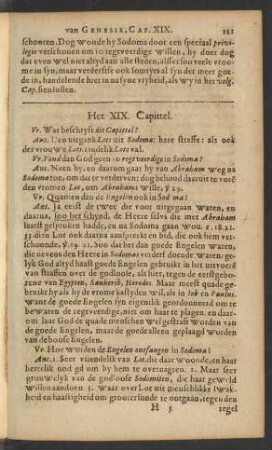 van GENESIS, CAP. XIX. 121
schooren. Dog woude hy Sodoma door een speciaal privi-
legie verschoonen om 10 regtveerdige willen, hy doet dog
dat even wel niet altyd aan alle steden, alsser sou veele vroo-
me in syn, maar verderft se ook somtyts al syn der meer goe-
de in, handelende hier in na syne vryheid, als wy in het volg.
Cap. sien sullen.
Het XIX. Capittel.
Vr. Wat beschryft dit Capittel?
Ant. Den uitgank Lots uit Sodoma: hare straffe: als ook
der vrouwe Lots, eindelik Lots val.
Vr. Vand dan God geen 10 regtveerdige in Sodoma?
Ant. Neen hy, en daarom gaat hy van Abraham weg na
Sodoma toe, om dat te verderven: dog behoud daar uit te voo-
den vromen Lot, om Abrahams wille, ℣ 29.
Vr. Quamen dan de Engelen ook in Sodoma?
Ant. Ja eerst de twee die voor uitgegaan waren, en
daarna, soo het schynd, de Heere selve die met Abraham
laast gesproken hadde, en na Sodoma gaan wou. c. 18. 21.
33. dien Lot ook daarna aanspreekt en bid, die ook hem ver-
schoonde, ℣. 19. 21. Soo dat het dan goede Engelen waren,
die nevens den Heere in Sodoma verderf doende waren: ge-
lyk God altyd haast goede Engelen gebruikt in het uitvoeren
van straffen over de godloose, als hier, tegen de eerstgebore-
ne van Egypten, Sanherib, Herodes. Maar meest quade ge-
bruikt hy als hy de vromen kastyden wil, als in Job en Paulus.
want de goede Engelen syn eigenlik geordonneerd om te
bewaren de regtveerdige, niet om haar te plagen. en daar-
om laat God de quade menschen wel gestraft worden van
de goede Engelen, maar de goede alleen geplaagd worden
van de booste.
Vr. Hoe worden de Engelen ontfangen in Sodoma?
Ant. 1. Seer vriendelik van Lot, die daar woonde, en haar
hertelik nood gd om by hem te overnagten. 2. Maar seer
grouwelyk van de godloose Sodomiten, die haar geweld
willen aandoen. 3. Waar over Lot uit menschelikke swak-
heid en haastigheid om grooter sonde te ontgaan, tegen den
H 5 regel